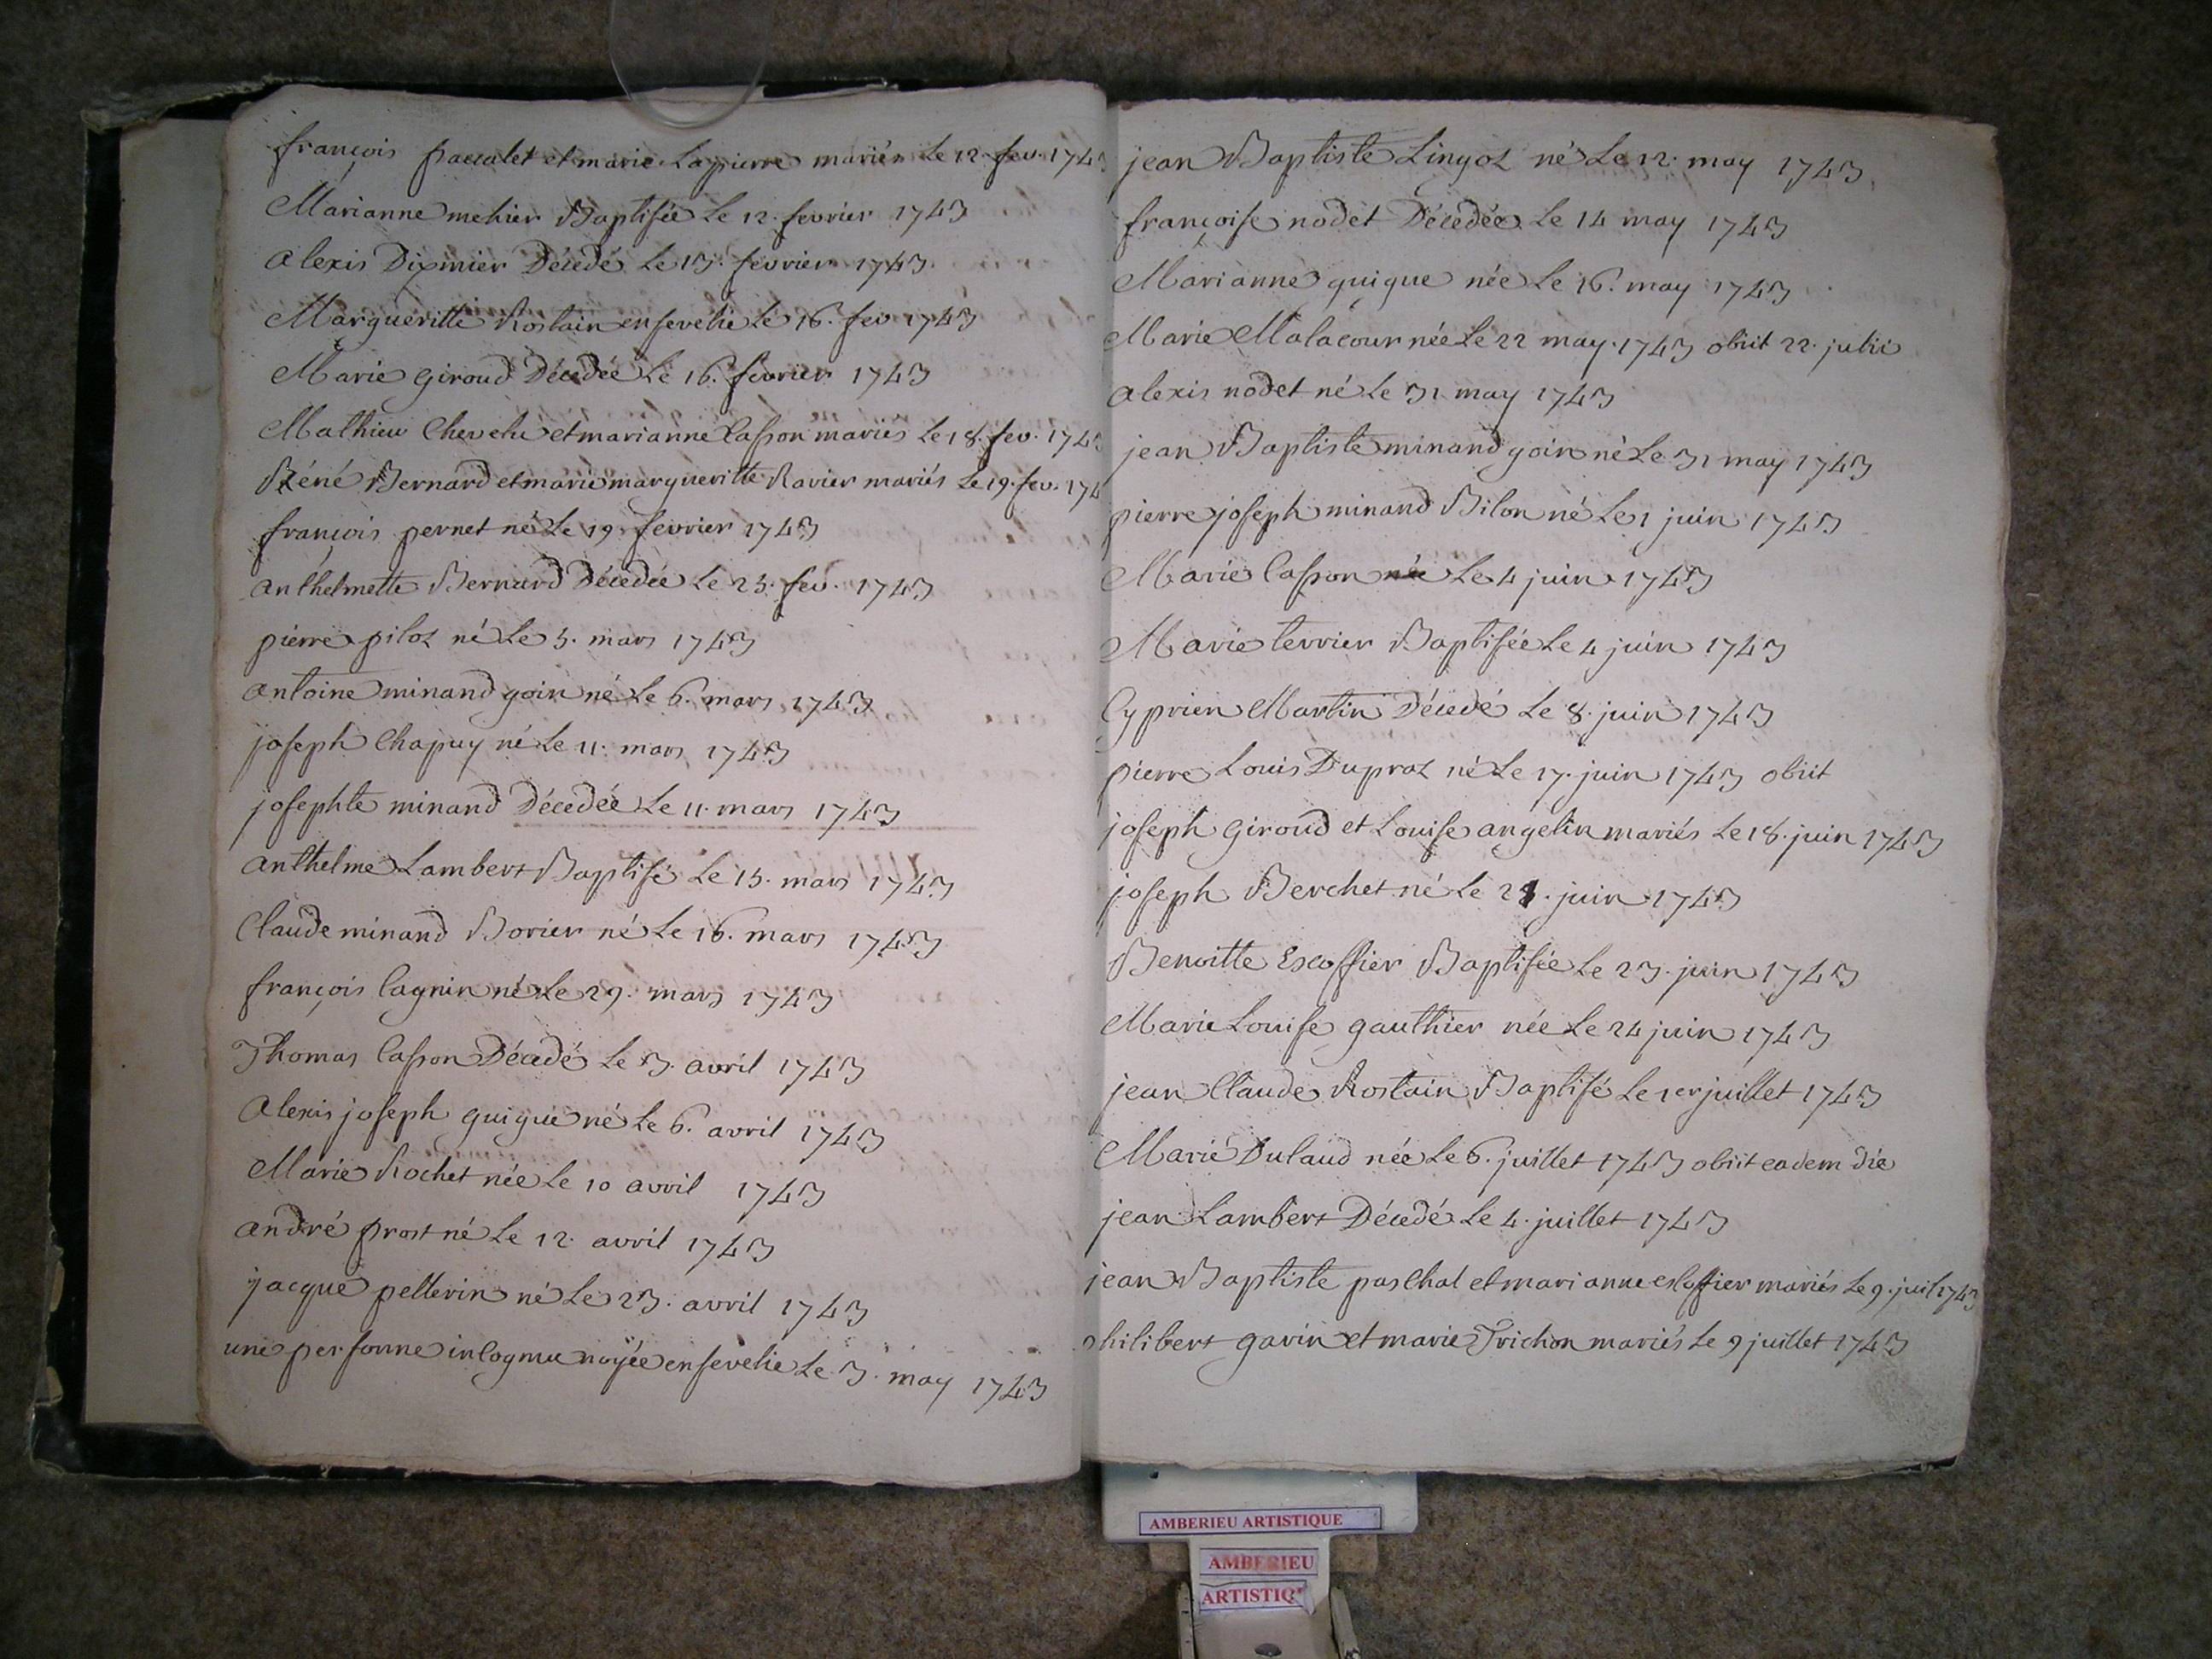 françois paccalet et marie Lapierre mariés Le 12. fev. 174
Marianne mehier Baptisée Le 12. fevrier 1743
alexis Dixmier Décedé Le 13. fevrier 1743
Margueritte Rostain ensevelie Le 16. fev 1743
Marie giroud Décedée Le 16. fevrier 1743
Mathieu Chevelu et marianne Casson mariés Le 18. fev. 174
Réné Bernard et marie margueritte Ravier mariés Le 19. fev. 174
françois pernet né Le 19. fevrier 1743
anthelmette Bernard Décedée Le 25. fev. 1743
pierre pilot né Le 5. mars 1743
antoine minand goin né Le 6. mars 1743
joseph Chapuy né Le 11. mars 1743
josephte minand Décedée Le 11. mars 1743
anthelme Lambert Baptisé Le 15. mars 1743
Claude minand Borier né Le 16. mars 1743
françois Cagnin né Le 29. mars 1743
Thomas Casson Décedé Le 3. avril 1743
alexis joseph guigue né Le 6. avril 1743
Marie Rochet née Le 10 avril 1743
andré prost né Le 12. avril 1743
jacque pellerin né Le 23. avril 1743
une personne incognue noyée ensevelie Le 3. may 1743
jean Baptiste Lingot né Le 12. may 1743
françoise nodet Décedée Le 14 may 1743
Marianne guigue née Le 16. may 1743
Marie Malacour née Le 22 may. 1743 obiit 22. julii
alexis nodet né Le 31 may 1743
jean Baptiste minand goin né Le 31 may 1743
pierre joseph minand Bilon né Le 1 juin 1743
Marie Casson née Le 4 juin 1743
Marie terrier Baptisée Le 4 juin 1743
Cyprien Martin Décedé Le 8. juin 1743
pierre Louis Duprat né Le 17. juin 1743 obiit
joseph giroud et Louise angelin mariés Le 18. juin 1743
joseph Berchet né Le 21. juin 1743
Benoitte Escoffier Baptisée Le 23. juin 1743
Marie Louise gauthier née Le 24 juin 1743
jean Claude Rostain Baptisé Le 1er juillet 1743
Marie Dulaud née Le 6. juillet 1743 obiit eadem die
jean Lambert Décedé Le 4. juillet 1743
jean Baptiste paschal et marianne escoffier mariés Le 9. juil 1743
philibert gavin et marie Trichon mariés Le 9 juillet 1743
AMBERIEU ARTISTIQUE
AMBERIEU
ARTISTIQ